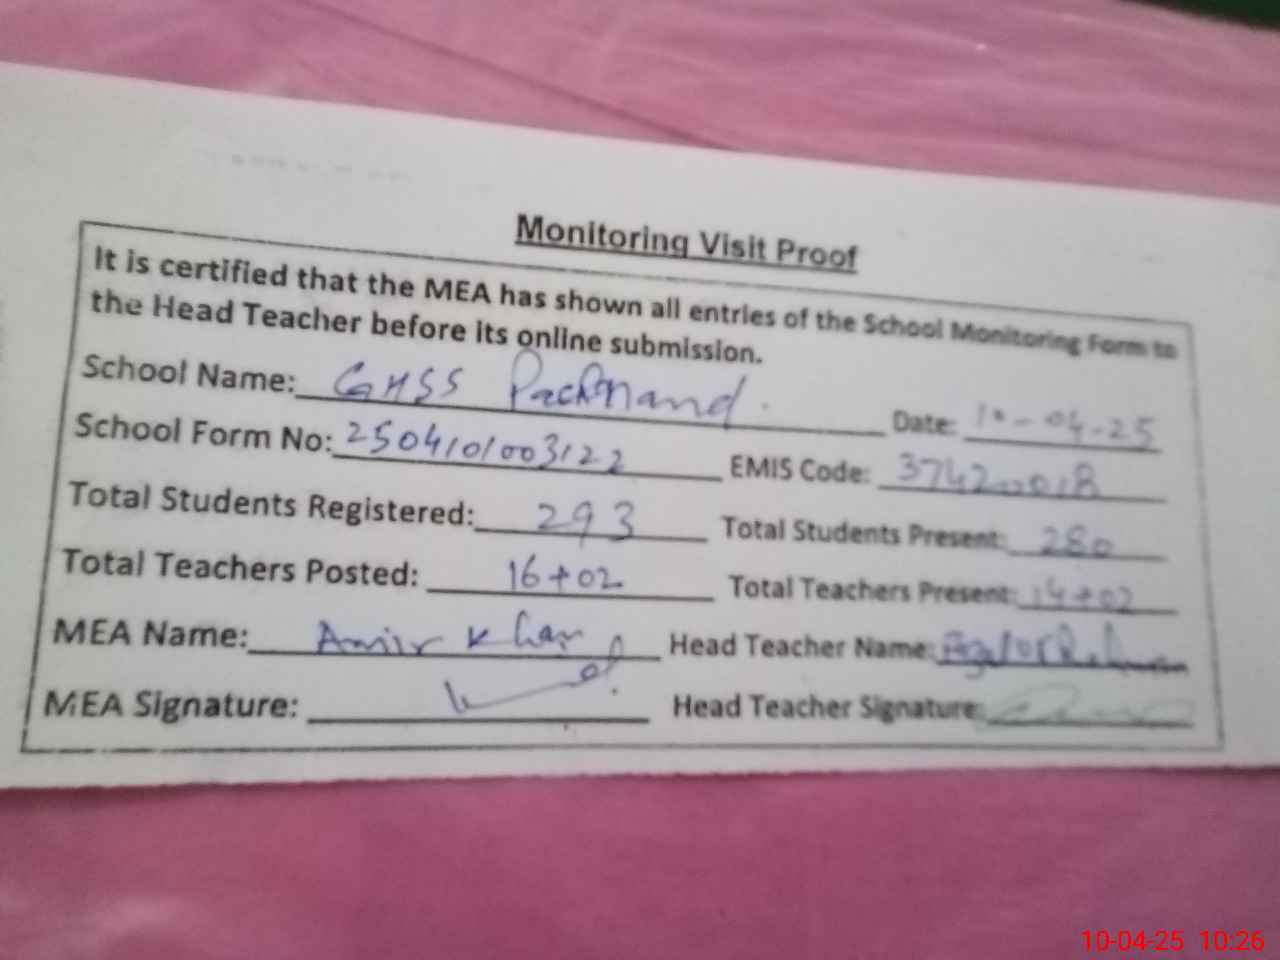 Monitoring Visit Proof
It is certified that the MEA has shown all entries of the School Monitoring Form to
the Head Teacher before its online submission.
School Name: GHSS Pachnand. Date: 10-04-25
School Form No: 2504101003122 EMIS Code: 37420018
Total Students Registered: 293 Total Students Present: 280
Total Teachers Posted: 16+02 Total Teachers Present: 14+02
MEA Name: Amir Khan Head Teacher Name:
MEA Signature: Head Teacher Signature:
10-04-25 10:26